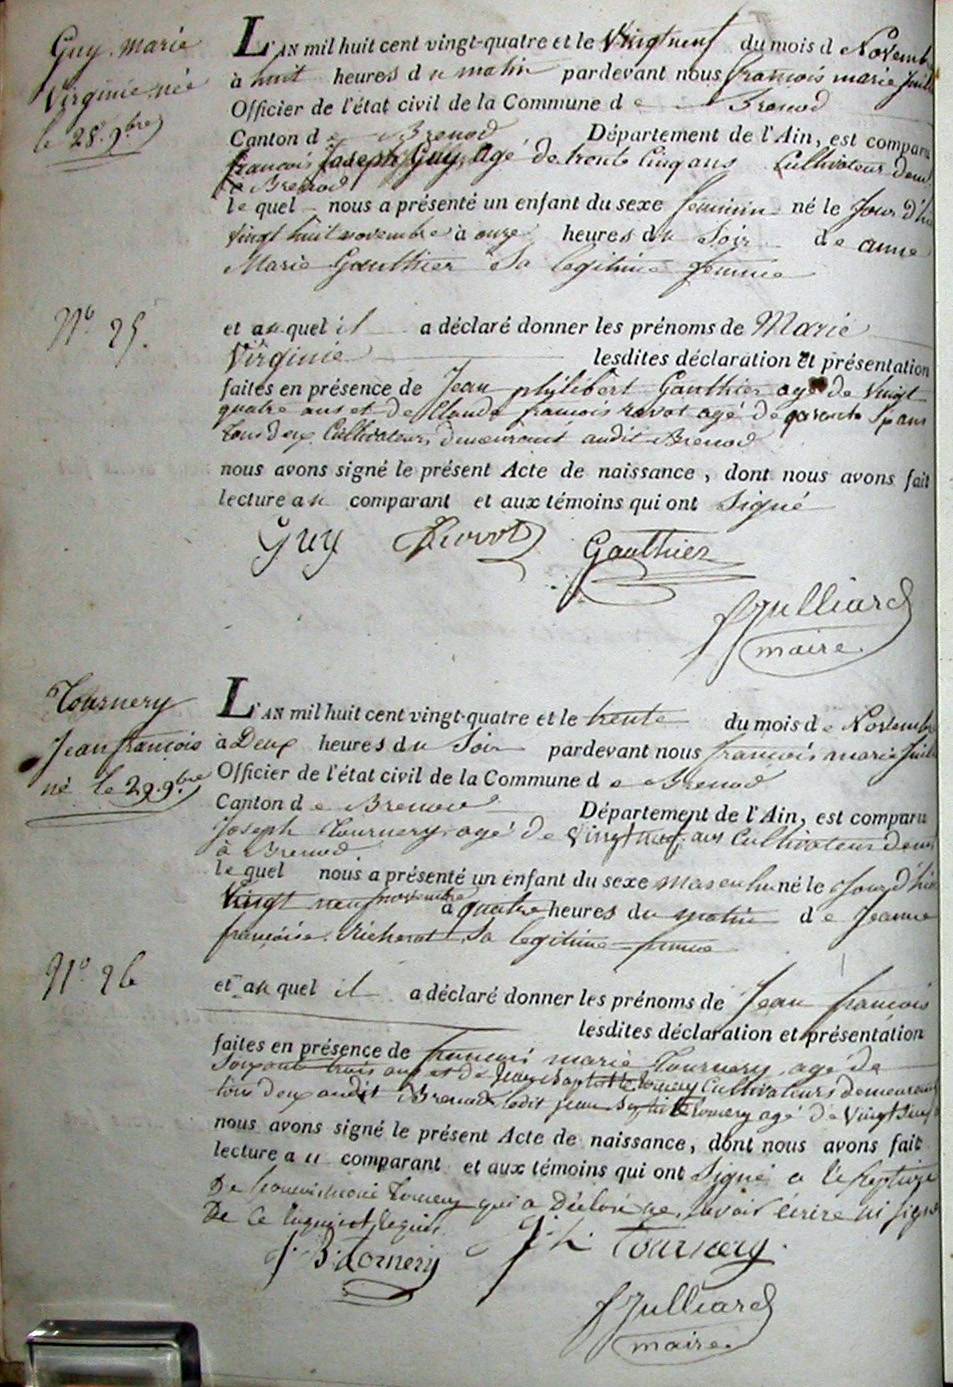 Guy Marie
Virginie née
le 28 9bre
L'AN mil huit cent vingt-quatre et le Vingt neuf du mois d e Novemb
à huit heures d u matin pardevant nous francois marie Juill
Officier de l'état civil de la Commune d e Brenod
Canton d e Brenod Département de l'Ain, est comparu
francois Joseph Guy, agé de trente Cinq ans Cultivateur dem
à Brenod
le quel nous a présenté un enfant du sexe feminin né le Jour D'hi
vingt huit novembre à onze heures du Soir de anne
Marie Gauthier Sa legitime femme
No 25.
et au quel il a déclaré donner les prénoms de Marie
Virginie lesdites déclaration et présentation
faites en présence de Jean philibert Gauthier agé de Vingt
quatre ans et de Claude francois ravot agé de quarante Sp ans
tous deux Cultivateurs demeurant audit Brenod
nous avons signé le présent Acte de naissance, dont nous avons fait
lecture au comparant et aux témoins qui ont Signé
Guy Ravot Gauthier
f Julliard
maire
Tournery
Jean francois
né le 29 9bre
L'AN mil huit cent vingt-quatre et le trente du mois d e Novemb
à Deux heures du Soir pardevant nous francois marie Juill
Officier de l'état civil de la Commune d e Brenod
Canton d e Brenod Département de l'Ain, est comparu
Joseph Tournery agé de Vingt neuf ans Cultivateur dem
à Brenod
le quel nous a présenté un enfant du sexe masculin né le Jour d'hie
Vingt neuf novembre à quatre heures du matin d e Jeanne
francoise Richerot Sa legitime femme
No 26
et au quel il a déclaré donner les prénoms de Jean francois
lesdites déclaration et présentation
faites en présence de francois marie Tournery agé de
Soixante trois ans et de Jean baptiste tornery Cultivateurs demeurant
tous deux audit Brenod ledit Jean Baptiste tornery agé de Vingt
nous avons signé le présent Acte de naissance, dont nous avons fait
lecture a u comparant et aux témoins qui ont Signé a l'Exeption
De francois marie Tournery qui a Déclaré ne savoir Ecrire ni signe
De Ce Enquis et Requis
J. B. tornery J. h. Tournery.
f Julliard
maire.